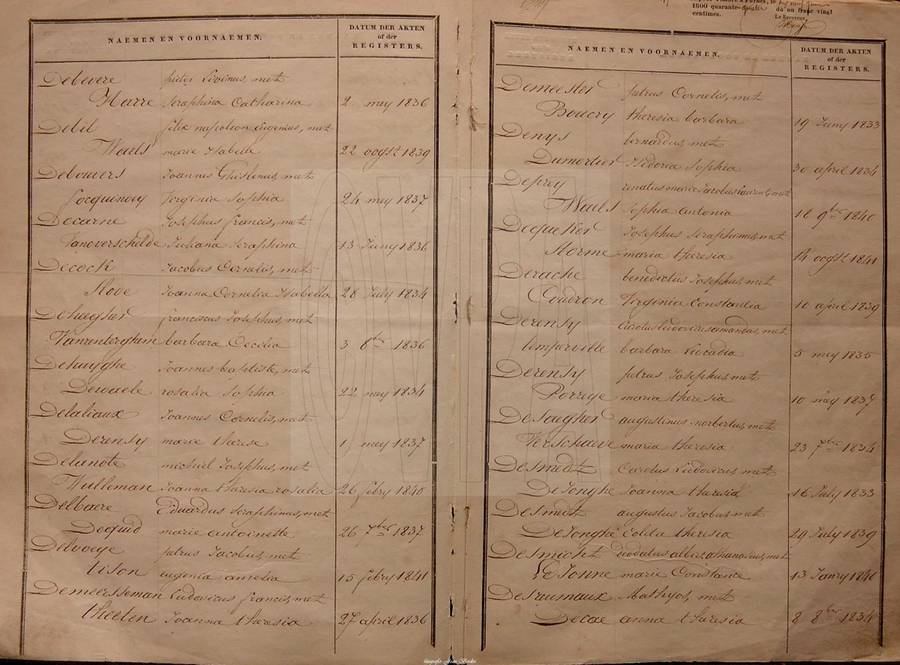 NAEMEN EN VOORNAEMEN.
DATUM DER AKTEN
of der
REGISTERS.
Debevere pieter Livinus, met
Harre Seraphina Catharina 2 mey 1836
Debil felix napoleon Eugenius, met
Waels marie Isabelle 22 oogst 1839
Debouvers Joannes Ghislenus, met
Virginia Sophia 24 mey 1837
Decarne Josephus francis, met
Vanoverschelde Juliana Seraphina 13 Juny 1836
Decock Jacobus Cornelius, met
Slove Joanna Cornelia Isabella 28 July 1834
Dehaegher franciscus Josephus, met
Vanrenterghem barbara Cecilia 3 8bre 1836
Dehuyghe Joannes baptiste, met
Dewaele rosalia Sophia 22 mey 1834
Delaliaux Joannes Cornelis, met
Derensy marie therese 1 mey 1837
Delanote michiel Josephus, met
Wulleman Joanna theresia rosalia 26 febry 1840
Delbaere Eduardus Seraphinus, met
Dequid marie antoinette 26 7bre 1837
petrus Jacobus, met
tison eugenia amelia 15 febry 1841
Demeersseman Ludovicus francis, met
theeten Joanna theresia 27 april 1836
1800 quarante-
centimes.
du un franc vingt
Le Receveur,
NAEMEN EN VOORNAEMEN.
DATUM DER AKTEN
of der
REGISTERS.
Demeester petrus Cornelis, met
Boucry theresia barbara 19 Juny 1833
Denys bernardus met
Dumortier Isidoria Sophia 30 april 1834
Deprey renatus marie Jacobus met
Waels Sophia antonia 9bre 1840
Dequeker Josephus Seraphinus, met
Storme maria theresia 14 oogst 1841
Derache benedictus Josephus, met
Coudron Virginia Constantia 10 april 1839
Derensy Carolus ludovicus amandus, met
barbara Leocadia 5 mey 1835
Derensy petrus Josephus met
Porreye maria theresia 10 mey 1837
DeSaegher augustinus norbertus, met
Verschaeve maria theresia 23 7bre 1834
DeSmedt Carolus Ludovicus met
DeJonghe Joanna theresia 16 July 1833
DeSmedt augustus Jacobus met
DeJonghe Coleta theresia 29 July 1839
DeSmicht met
LeJonne marie Constance 13 Janry 1840
Desrumaux Mathys, met
Decae anna theresia 8 8bre 1834